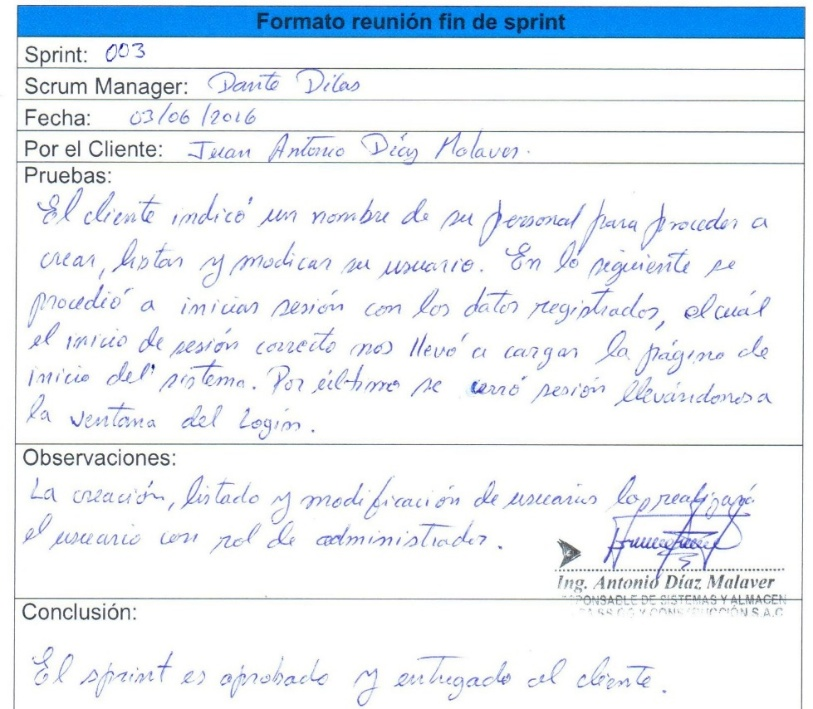 Formato reunión fin de sprint
Sprint: 003
Scrum Manager: Dante Dilas
Fecha: 03/06/2016
Por el Cliente: Juan Antonio Díaz Malaver.
Pruebas:
El cliente indicó un nombre de su personal para proceder a
crear, listar y modicar su usuario. En lo siguiente se
procedió a iniciar sesión con los datos registrados, el cuál
el inicio de sesión correcto nos llevó a cargar la página de
inicio del sistema. Por último se cerró sesión llevándonos a
la ventana del Login.
Observaciones:
La creación, listado y modificación de usuarios los realizará
el usuario con rol de administrador.
Ing. Antonio Díaz Malaver
RESPONSABLE DE SISTEMAS Y ALMACEN
Y CONSTRUCCIÓN S.A.C
Conclusión:
El sprint es aprobado y entregado al cliente.